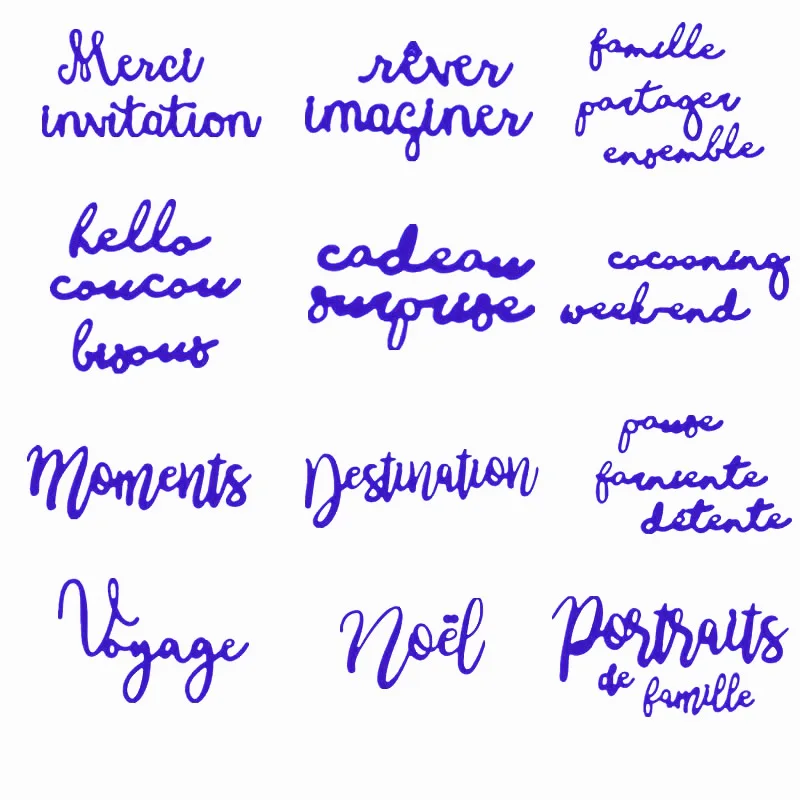 Merci
invitation
rêver
imaginer
famille
partager
ensemble
hello
coucou
bisous
cadeau
surprise
cocooning
week-end
Moments
Destination
pause
farniente
détente
Voyage
Noël
Portraits
de famille